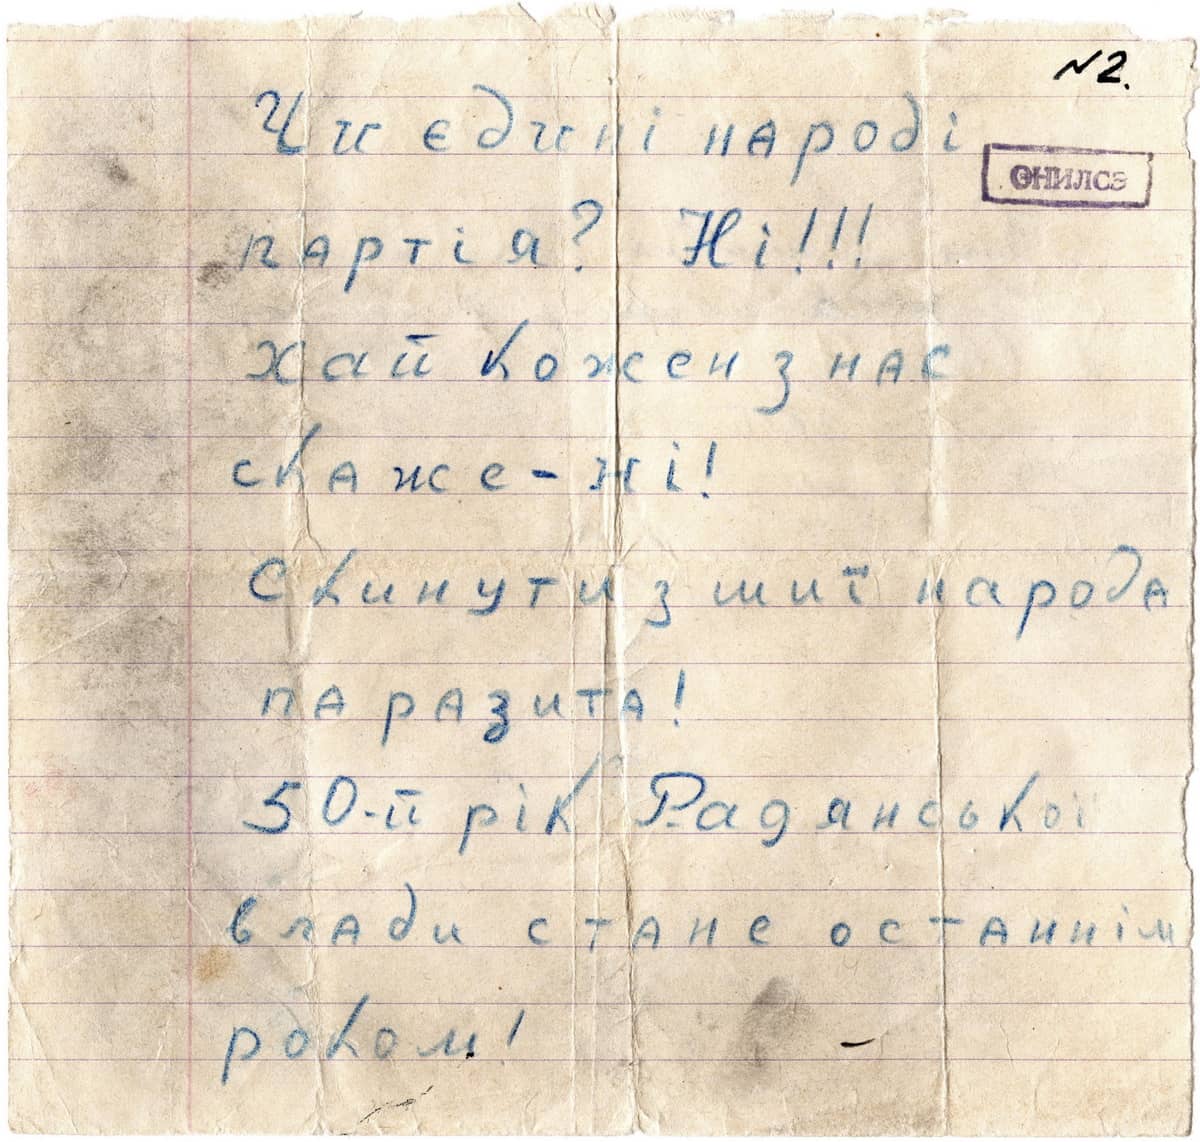 №2.
Чи єдині народ і
ОНИЛСЭ
партія? Ні!!!
Хай кожен з нас
скаже - ні!
Скинути з шиї народа
паразита!
50-й рік Радянської
влади стане останнім
роком!